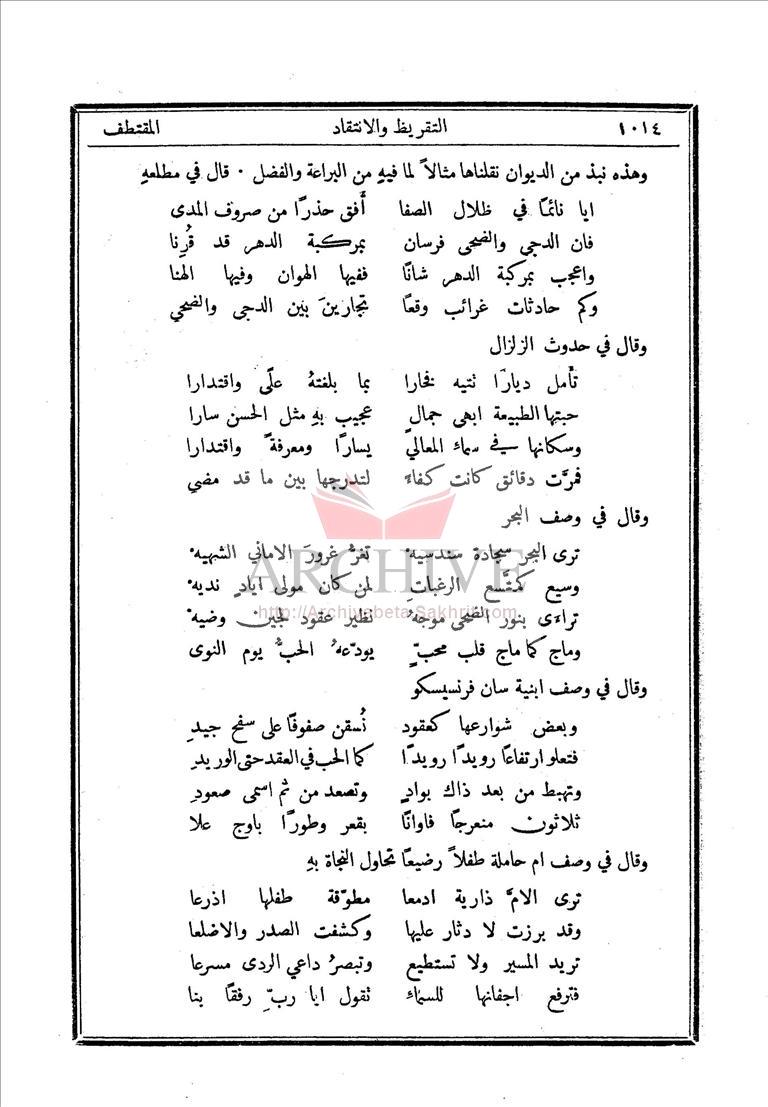 ١٠١٤ التقريظ والانتقاد المقتطف
وهذه نبذ من الديوان نقلناها مثالاً لما فيهِ من البراعة والفضل · قال في مطلعهِ
ايا نائمًا في ظلال الصفا أَفق حذرًا من صروف المدى
فان الدجى والضحى فرسان بمركبة الدهر قد قُرِنا
واعجب بمركبة الدهر شانًا ففيها الهوان وفيها الهنا
وكم حادثات غرائب وقعًا تجارينَ بين الدجى والضحي
وقال في حدوث الزلزال
تأمل ديارًا تتيه فخارا بما بلغتهُ علًى واقتدارا
حبتها الطبيعة ابهى جمالٍ عجيب بهِ مثل الحسن سارا
وسكانها في سماء المعالي يسارًا ومعرفةً واقتدارا
فمرَّت دقائق كانت كفاءً لتدرجها بين ما قد مضي
وقال في وصف البحر
ترى البحر سجادة سندسيه تغرُّ غرورَ الاماني الشهيه
وسيع كمتَّسع الرغباتِ لمن كان مولى ايادٍ نديه
تراءَى بنور الضحى موجهُ نظير عقود لجين وضيه
وماج كما ماج قلب محبٍّ يودّعهُ الحبُّ يوم النوى
وقال في وصف ابنية سان فرنسيسكو
وبعض شوارعها كعقود نُسقن صفوفًا على سفح جيدِ
فتعلو ارتفاعًا رويدًا رويدًا كما الحب في العقد حتى الوريدِ
وتهبط من بعد ذاك بوادٍ وتصعد من ثم اسمى صعودِ
ثلاثون منعرجًا فاوانًا بقعر وطورًا باوج علا
وقال في وصف ام حاملة طفلاً رضيعًا تحاول النجاة بهِ
ترى الامَّ ذارية ادمعا مطوّقة طفلها اذرعا
وقد برزت لا دثار عليها وكشفت الصدر والاضلعا
تريد المسير ولا تستطيع وتبصرُ داعي الردى مسرعا
فترفع اجفانها للسماء تقول ايا ربِّ رفقًا بنا
ARCHIVE
http://Archivebeta.Sakhrit.com